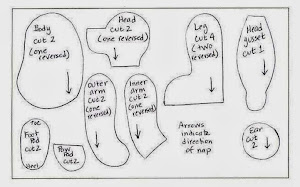 Body
cut 2
(one
reversed)
Head
cut 2
(one
reversed)
Leg
cut 4
(two
reversed)
Head
gusset
cut 1
Outer
arm
cut 2
(one
reversed)
Inner
arm
cut 2
(one
reversed)
Toe
Foot
Pad
cut 2
Heel
Paw
Pad
cut 2
Arrows
indicate
direction
of nap.
Ear
cut
2